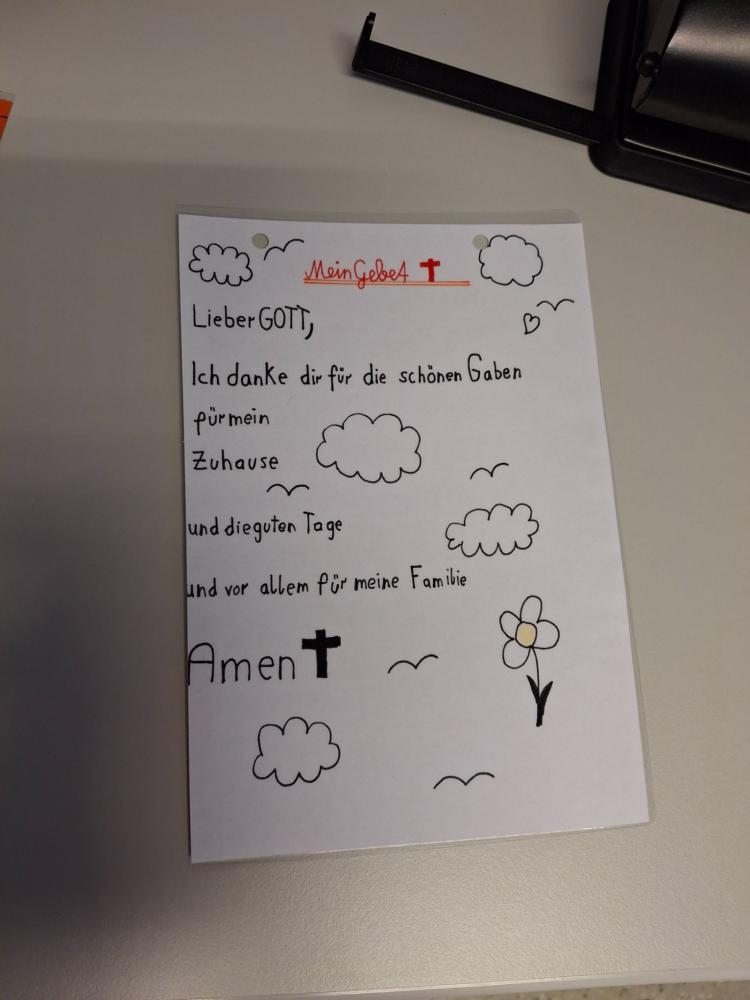 Mein Gebet
Lieber GOTT,
Ich danke dir für die schönen Gaben
für mein
Zuhause
und die guten Tage
und vor allem für meine Familie
Amen